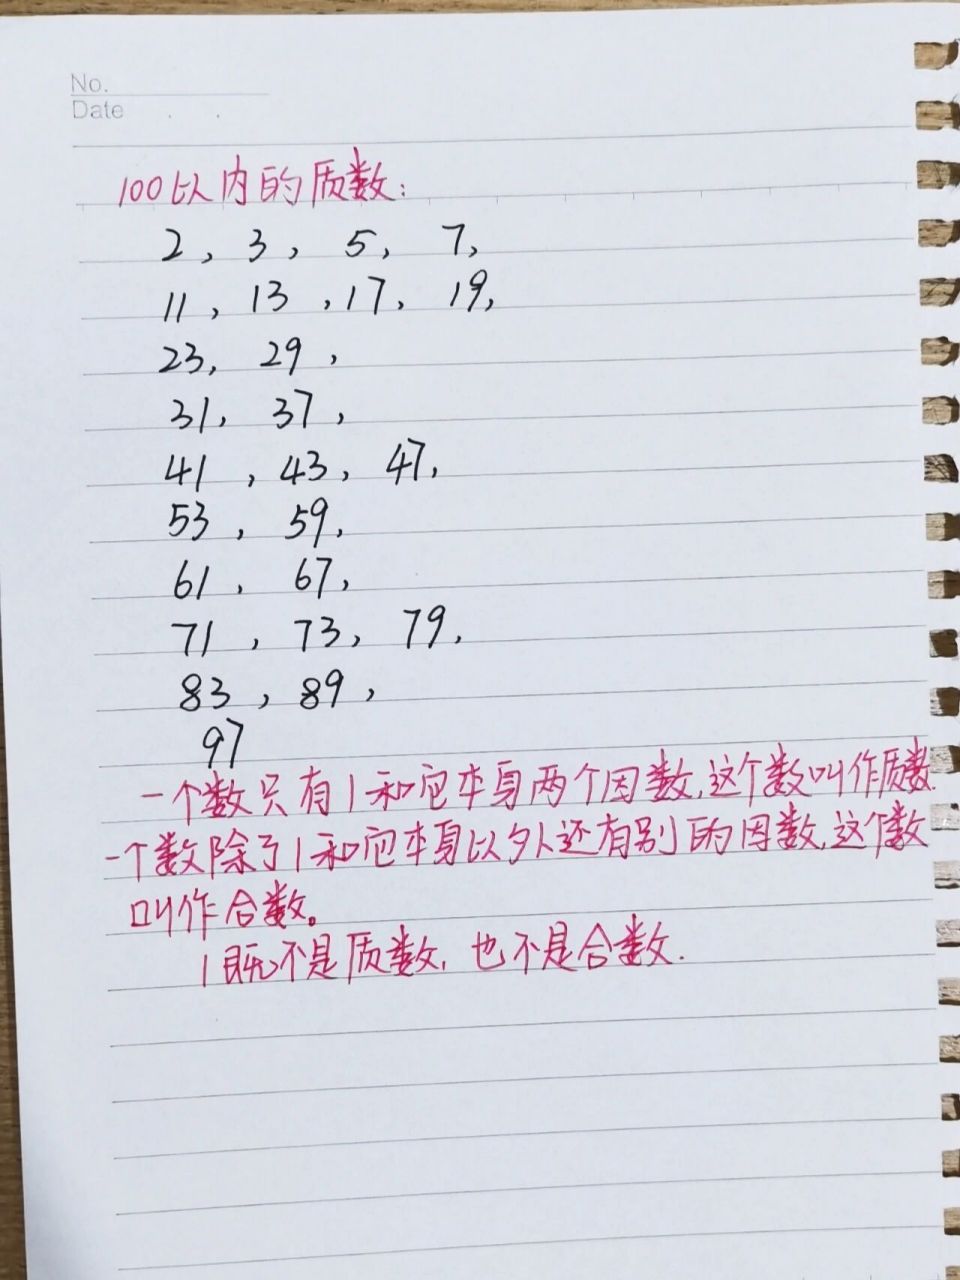 No.
Date
100以内的质数:
2, 3, 5, 7,
11, 13, 17, 19,
23, 29,
31, 37,
41, 43, 47,
53, 59,
61, 67,
71, 73, 79,
83, 89,
97
一个数只有1和它本身两个因数,这个数叫作质数.
一个数除了1和它本身以外还有别的因数,这个数
叫作合数。
1既不是质数, 也不是合数.